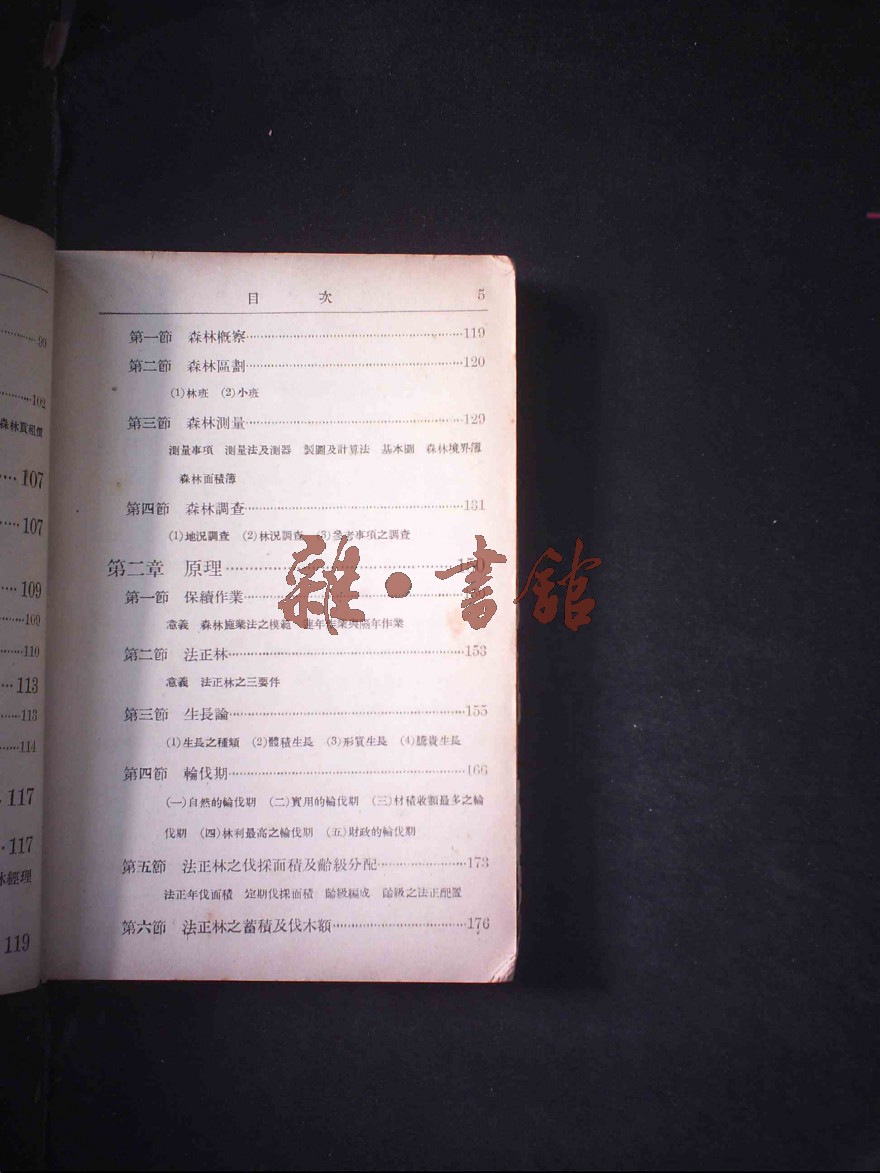 目 次 5
第一節 森林概察……119
第二節 森林區劃……120
(1)林班 (2)小班
第三節 森林測量……129
測量事項 測量法及測器 製圖及計算法 基本圖 森林境界簿
森林面積簿
第四節 森林調查……131
(1)地況調查 (2)林況調查 (3)參考事項之調查
第二章 原理……150
第一節 保續作業……
意義 森林施業法之模範 連年作業與隔年作業
第二節 法正林……153
意義 法正林之三要件
第三節 生長論……155
(1)生長之種類 (2)體積生長 (3)形質生長 (4)騰貴生長
第四節 輪伐期……166
(一)自然的輪伐期 (二)實用的輪伐期 (三)材積收額最多之輪
伐期 (四)林利最高之輪伐期 (五)財政的輪伐期
第五節 法正林之伐採面積及齡級分配……173
法正年伐面積 定期伐採面積 齡級編成 齡級之法正配置
第六節 法正林之蓄積及伐木額……176
雜·書館
99
102
森林買租價
107
107
109
109
110
113
113
114
117
117
林經理
119